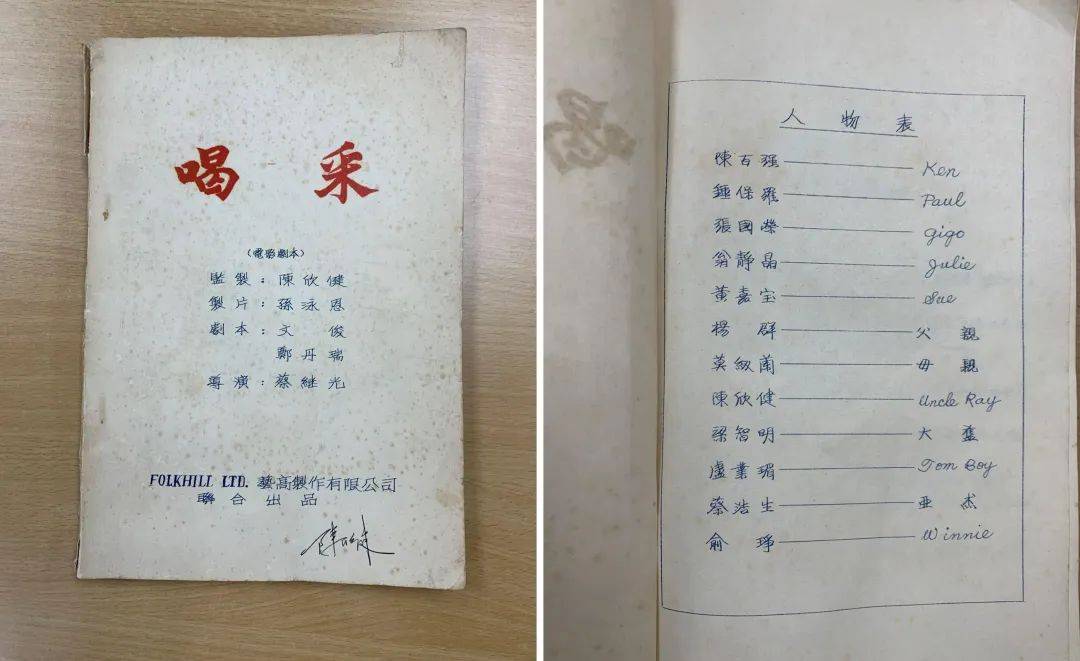 喝采
(電影劇本)
監製：陳欣健
製片：孫泳恩
劇本：文俊
鄭丹瑞
導演：蔡継光
FOLKHILL LTD. 藝高製作有限公司
聯合出品
陳欣健
人物表
陳百強 Ken
鍾保羅 Paul
張國榮 gigo
翁靜晶 Julie
黃嘉宝 Sue
楊群 父親
莫紉蘭 母親
陳欣健 Uncle Ray
梁智明 大
盧業瑂 Tom Boy
蔡浩生 亜杰
俞琤 Winnie